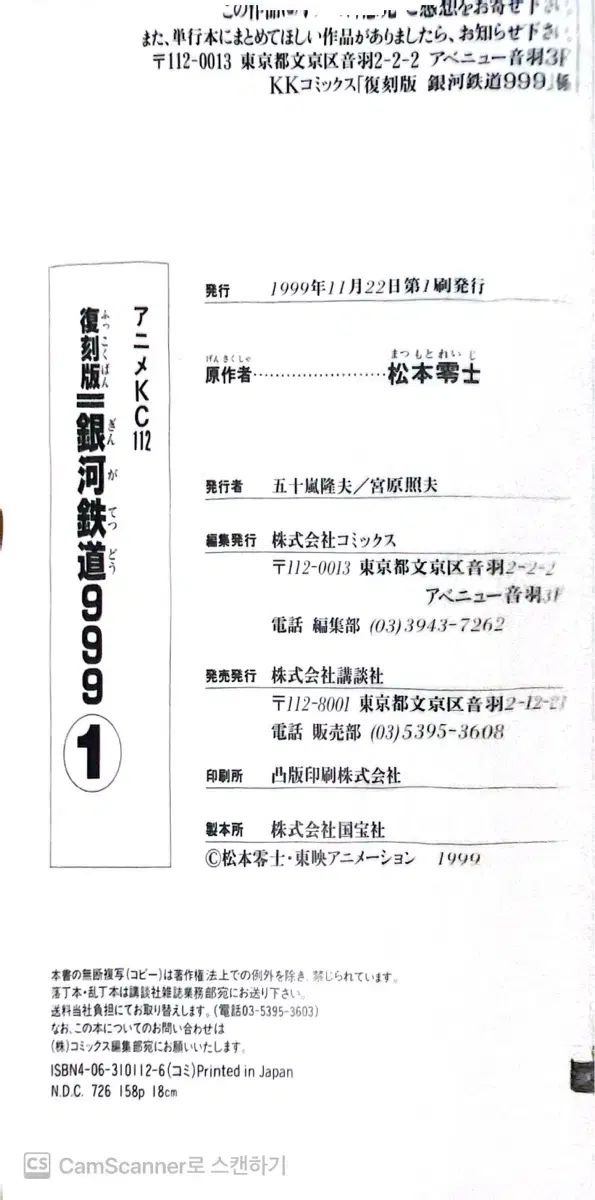 ご感想をお寄せ下さい。
また、単行本にまとめてほしい作品がありましたら、お知らせ下さい。
〒112-0013 東京都文京区音羽2-2-2 アベニュー音羽3F
KKコミックス「復刻版 銀河鉄道999」係
アニメKC112
ふっこくばん ぎんがてつどう
復刻版=銀河鉄道999
1
発行 1999年11月22日第1刷発行
げんさくしゃ まつもとれいじ
原作者……………………松本零士
発行者 五十嵐隆夫/宮原照夫
編集発行 株式会社コミックス
〒112-0013 東京都文京区音羽2-2-2
アベニュー音羽3F
電話 編集部 (03)3943-7262
発売発行 株式会社講談社
〒112-8001 東京都文京区音羽2-12-21
電話 販売部 (03)5395-3608
印刷所 凸版印刷株式会社
製本所 株式会社国宝社
©松本零士・東映アニメーション 1999
本書の無断複写(コピー)は著作権法上での例外を除き、禁じられています。
落丁本・乱丁本は講談社雑誌業務部宛にお送り下さい。
送料当社負担にてお取り替えします。(電話03-5395-3603)
なお、この本についてのお問い合わせは
(株)コミックス編集部宛にお願いいたします。
ISBN4-06-310112-6(コミ)Printed in Japan
N.D.C. 726 158p 18cm
CS CamScanner로 스캔하기